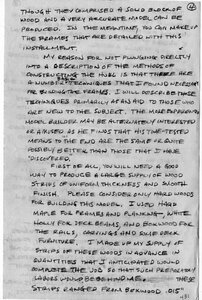 THOUGH THEY COMPRISED A SOLID BLOCK OF
WOOD AND A VERY ACCURATE MODEL CAN BE
PRODUCED. IN THE MEANTIME, YOU CAN MAKE UP
THE FRAMES THAT ARE DETAILED WITH THIS
INSTALLMENT.
MY REASON FOR NOT PLUNGING DIRECTLY
INTO A DESCRIPTION OF THE METHOD OF
CONSTRUCTING THE HULL IS THAT THERE ARE
TECHNIQUES THAT I FOUND NECESSARY
FOR THE FRAMES. I WILL DESCRIBE THESE
TECHNIQUES PRIMARILY AS AN AID TO THOSE WHO
ARE NEW TO THE SUBJECT. THE MORE EXPERIENCED
MODEL BUILDER MAY BE ALTERNATELY INTERESTED
OR AMUSED AS HE FINDS THAT HIS TIME-TESTED
MEANS TO THE END ARE THE SAME OR QUITE
POSSIBLY BETTER THAN THOSE THAT I HAVE
DISCOVERED.
FIRST OF ALL, YOU WILL NEED A GOOD
WAY TO PRODUCE A LARGE SUPPLY OF WOOD
STRIPS OF UNIFORM THICKNESS AND SMOOTH
FINISH. PLEASE CONSIDER ONLY HARD WOODS
FOR BUILDING THIS MODEL. I USED HARD
MAPLE FOR FRAMES AND PLANKING, WHITE
HOLLY FOR DECK BEAMS, AND BOXWOOD FOR
THE RAILS, CARVINGS AND SOME DECK
FURNITURE. I MADE UP MY SUPPLY OF
STRIPS OF THESE WOODS IN ADVANCE IN
QUANTITIES THAT I ANTICIPATED WOULD
COMPLETE THE JOB SO THAT SUCH PREPARATORY
LABORS WOULD BE BEHIND ME. THESE
STRIPS RANGED FROM BOXWOOD .015"